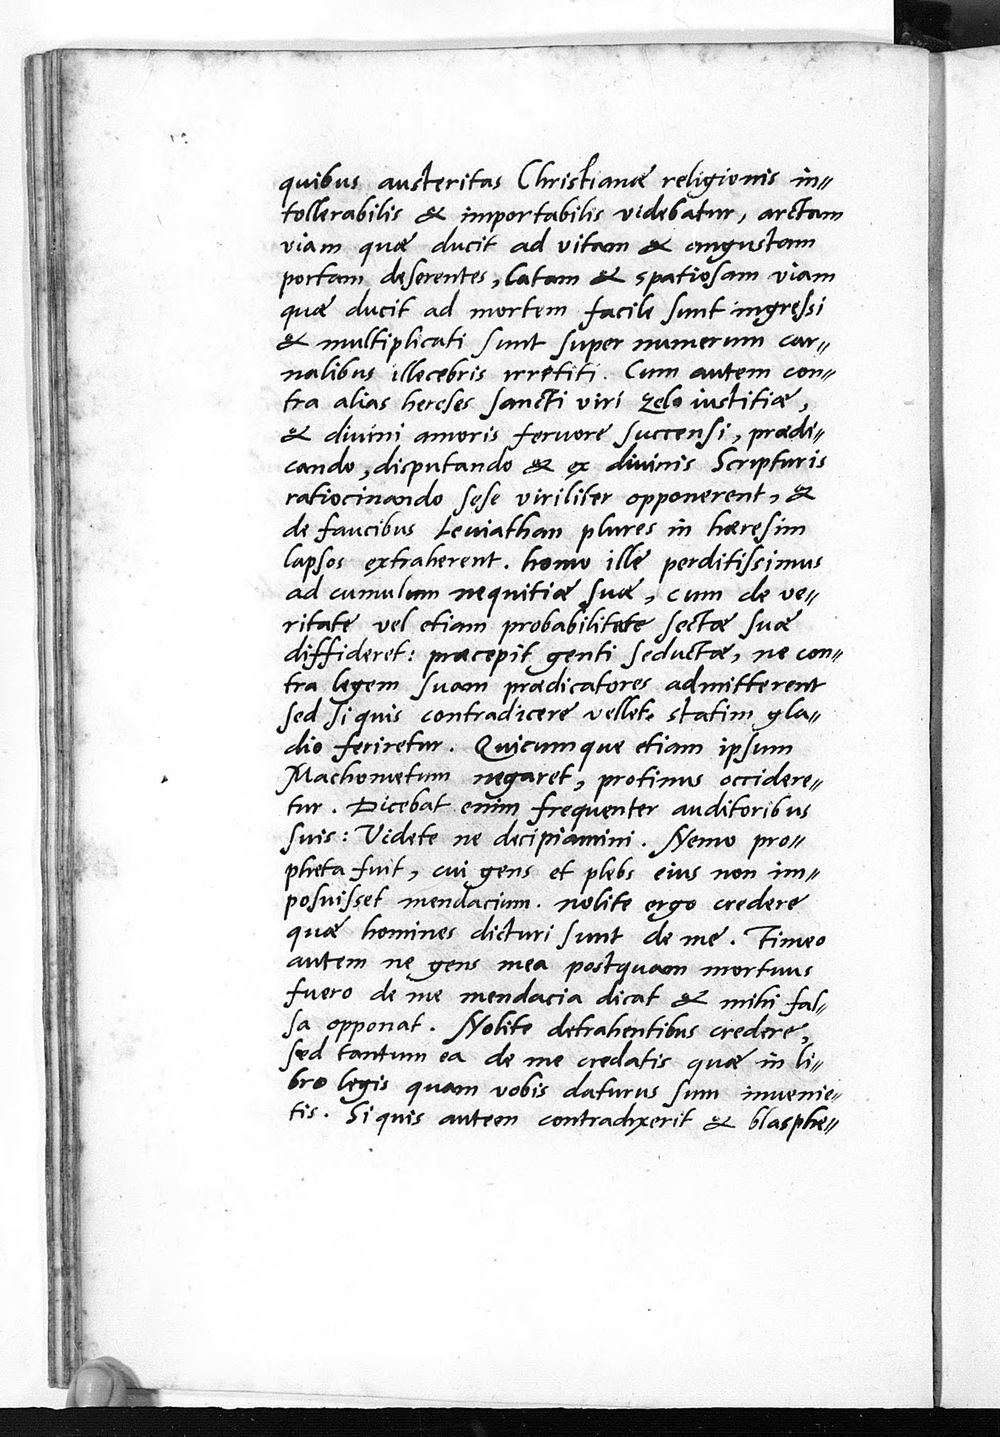 quibus austeritas Christianæ religionis in„
tollerabilis & importabilis videbatur, arctam
viam quæ ducit ad vitam & angustam
portam deserentes, latam & spatiosam viam
quæ ducit ad mortem facile sunt ingressi
& multiplicati sunt super numerum car„
nalibus illecebris irretiti. Cum autem con„
tra alias hereses sancti viri zelo iustitiæ,
& divini amoris feruore succensi, prædi„
cando, disputando & ex divinis Scripturis
ratiocinando sese viriliter opponerent, &
de faucibus Leuiathan plures in hæresim
lapsos extraherent. homo ille perditissimus
ad cumulum nequitiæ suæ, cum de ve„
ritate vel etiam probabilitate sectæ suæ
diffideret: præcepit genti seductæ, ne con„
tra legem suam prædicatores admitterent
sed si quis contradicere vellet. statim gla„
dio feriretur. Quicumque etiam ipsum
Machometum negaret, protinus occidere„
tur. Dicebat enim frequenter auditoribus
suis: Videte ne decipiamini. Nemo pro„
pheta fuit, cui gens et plebs eius non im„
posuisset mendacium. nolite ergo credere
quæ homines dicturi sunt de me. Timeo
autem ne gens mea postquam mortuus
fuero de me mendacia dicat & mihi fal„
sa opponat. Nolite detrahentibus credere,
sed tantum ea de me credatis quæ in li„
bro legis quam vobis daturus sum inuenie„
tis. Si quis autem contradixerit & blasphe„